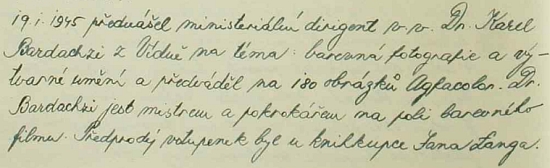 19.I.1945 předvášel ministeriální dirigent v.v. Dr. Karel
Bardachzi z Vídně na téma: barevná fotografie a vý-
tvarné umění a předváděl na 180 obrázků Agfacolor. Dr.
Bardachzi jest mistrem a pokrokářem na poli barevného
filmu. Předprodej vstupenek byl u knihkupce Jana Langa.